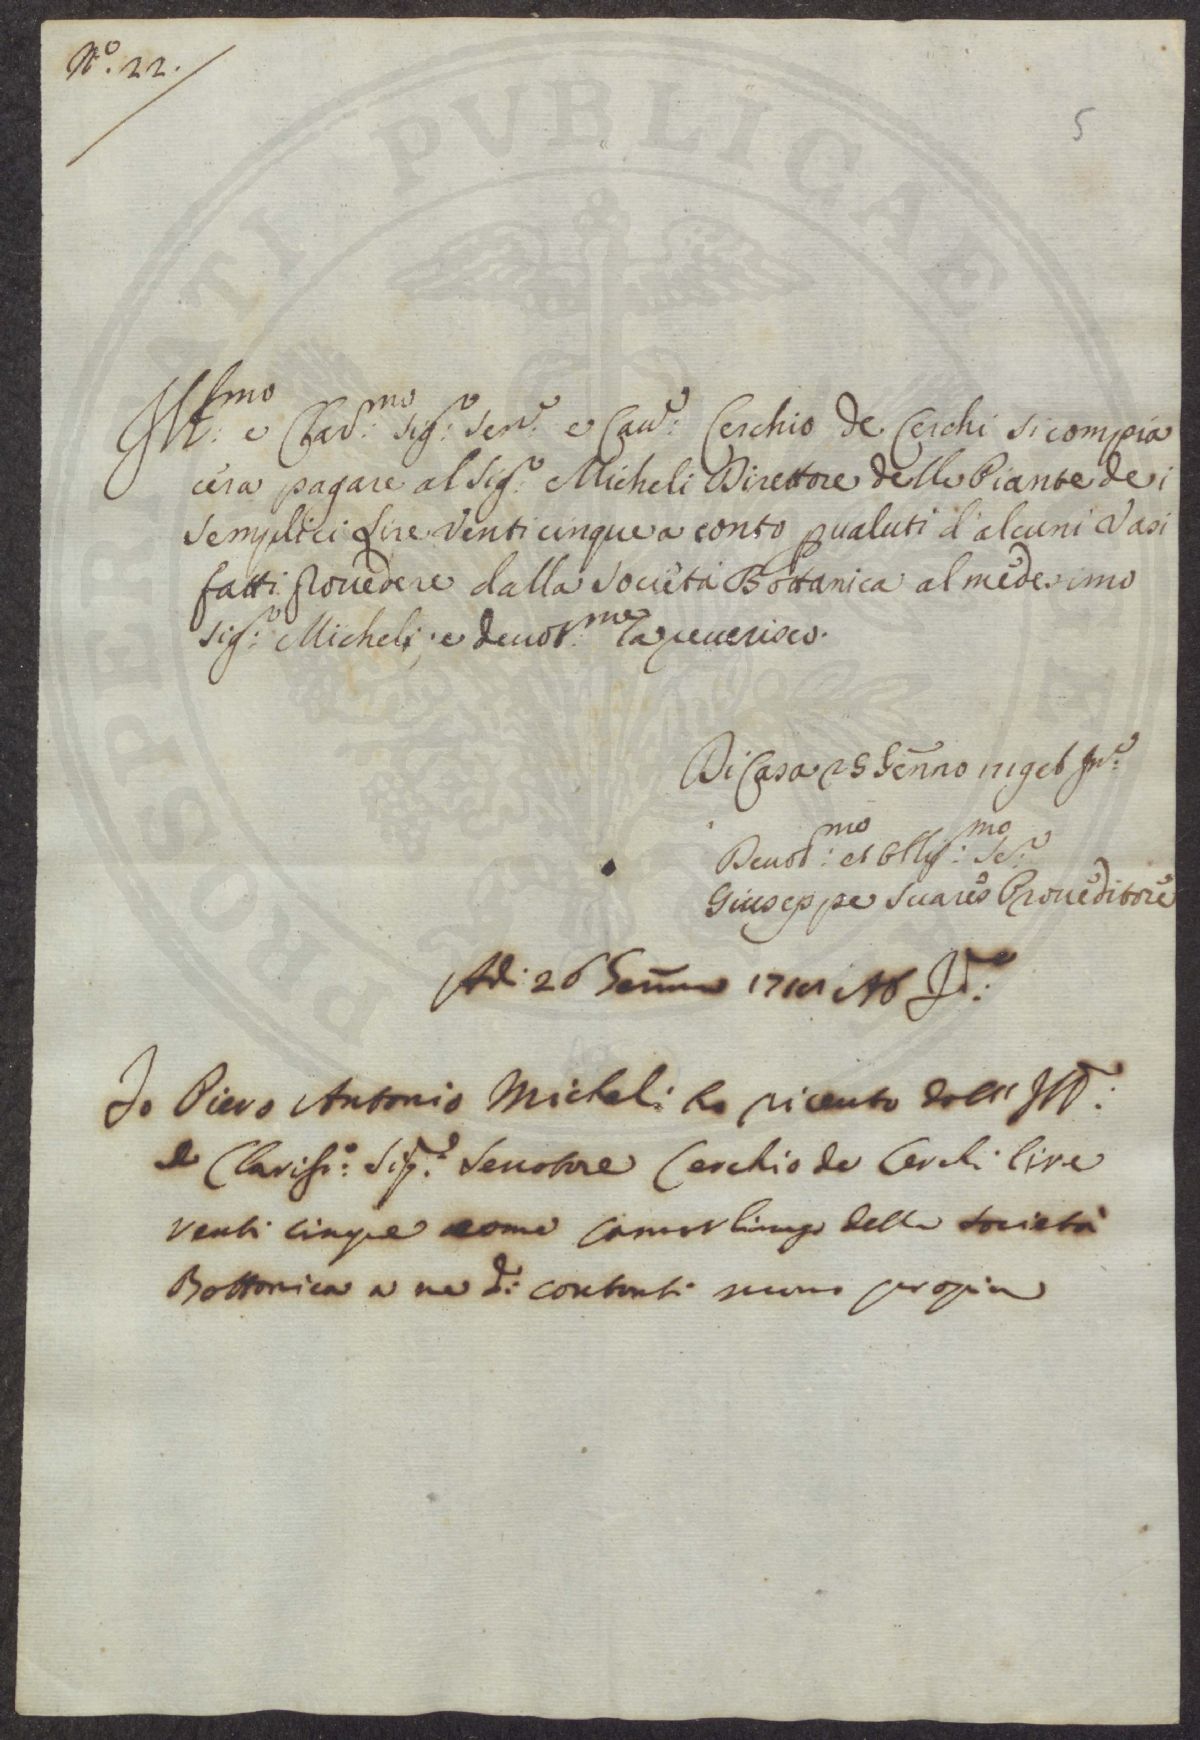 N.º 22.
5
Ill:mo e Clar:mo Sig:r Sen:r e Cav:r Cerchio de Cerchi si compia
cerà pagare al Sig:r Micheli Direttore delle Piante dei
Semplici Lire Venti cinque a conto valuti d'alcuni Vasi
fatti provedere dalla Società Bottanica al medesimo
Sig:r Micheli, e devot:mo la riverisco.
Di Casa 25 Genno
Devot:mo et Obblig:mo Se:r
Giuseppe Suares Proveditore
Adi 26 Genn
Io Piero Antonio Micheli ho ricevuto dall Ill:
e Clariss:o Sig:r Senatore Cerchio de Cerchi lire
venti cinque come Camarlingo della Società
Bottonica a me d: contanti mano propia
PROSPERITATI PUBLICAE